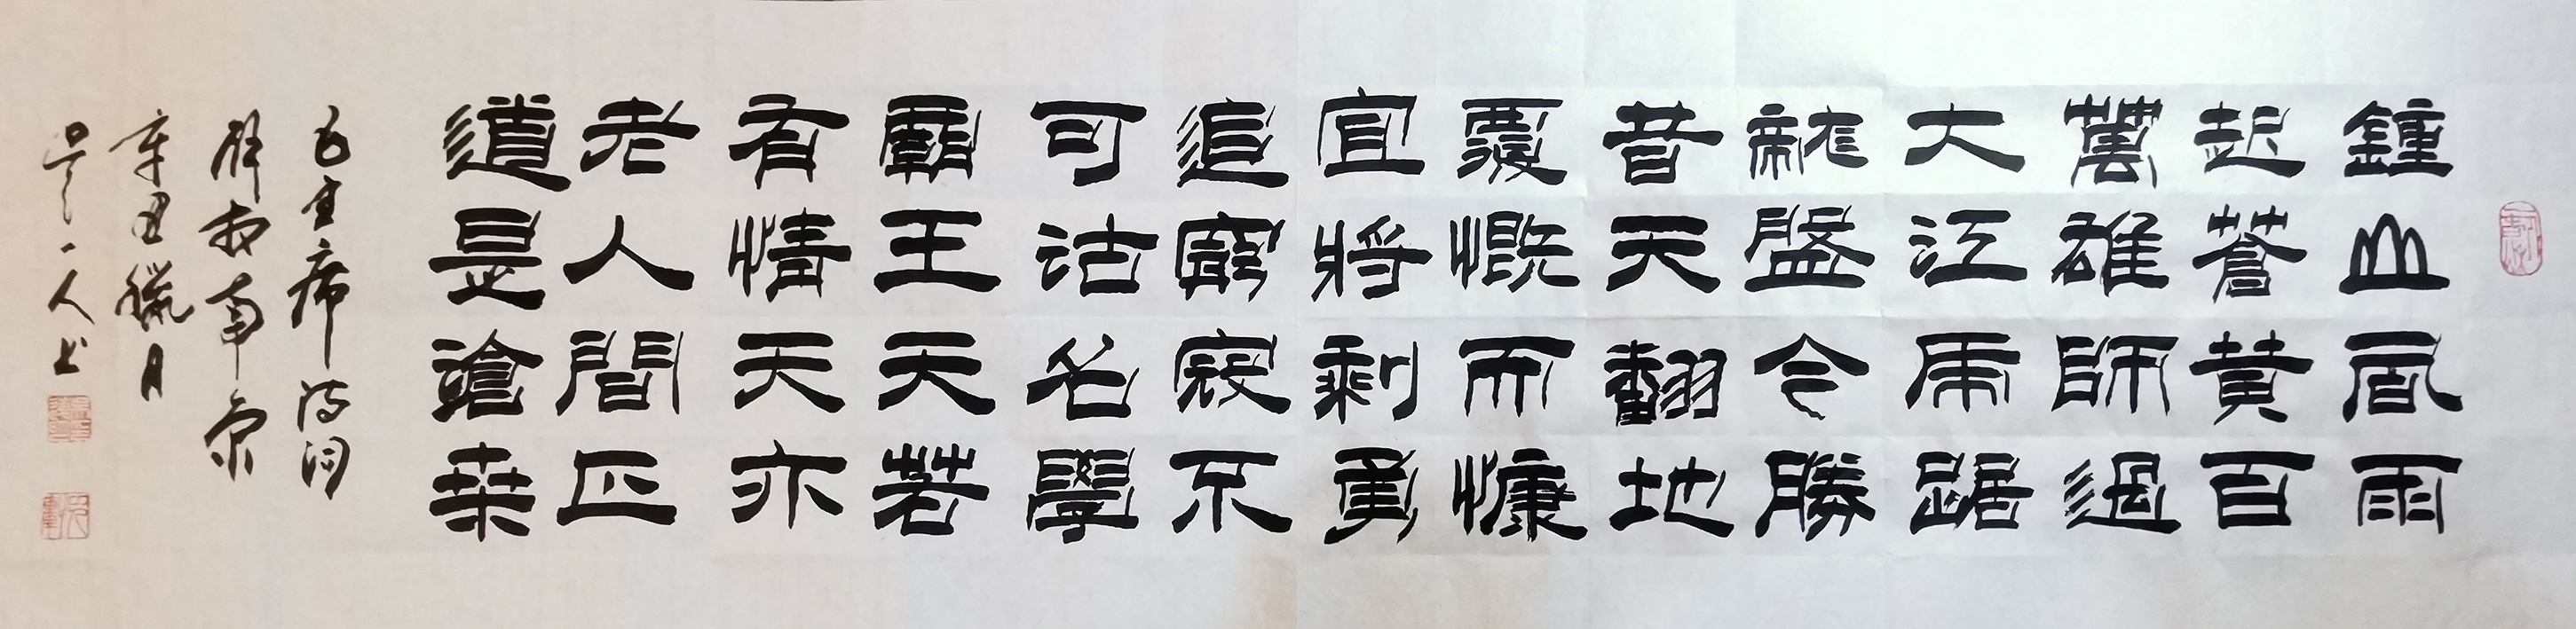 鍾山風雨
起蒼黄百
萬雄師過
大江虎踞
龍盤今勝
昔天翻地
覆慨而慷
宜將剩勇
追窮寇不
可沽名學
霸王天若
有情天亦
老人間正
道是滄桒
毛主席诗词
解放南京
辛丑臘月
一人书